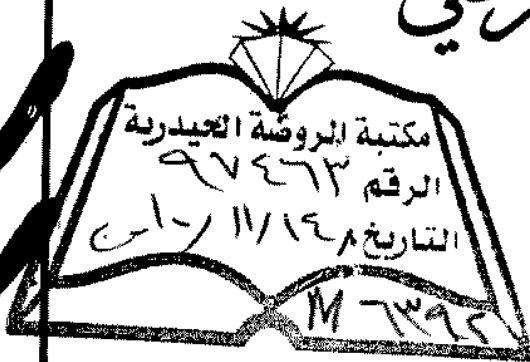 مكتبة الروضة الحيدرية
الرقم ٩٧٤٦٣
التاريخ
M ٦٣٩٢